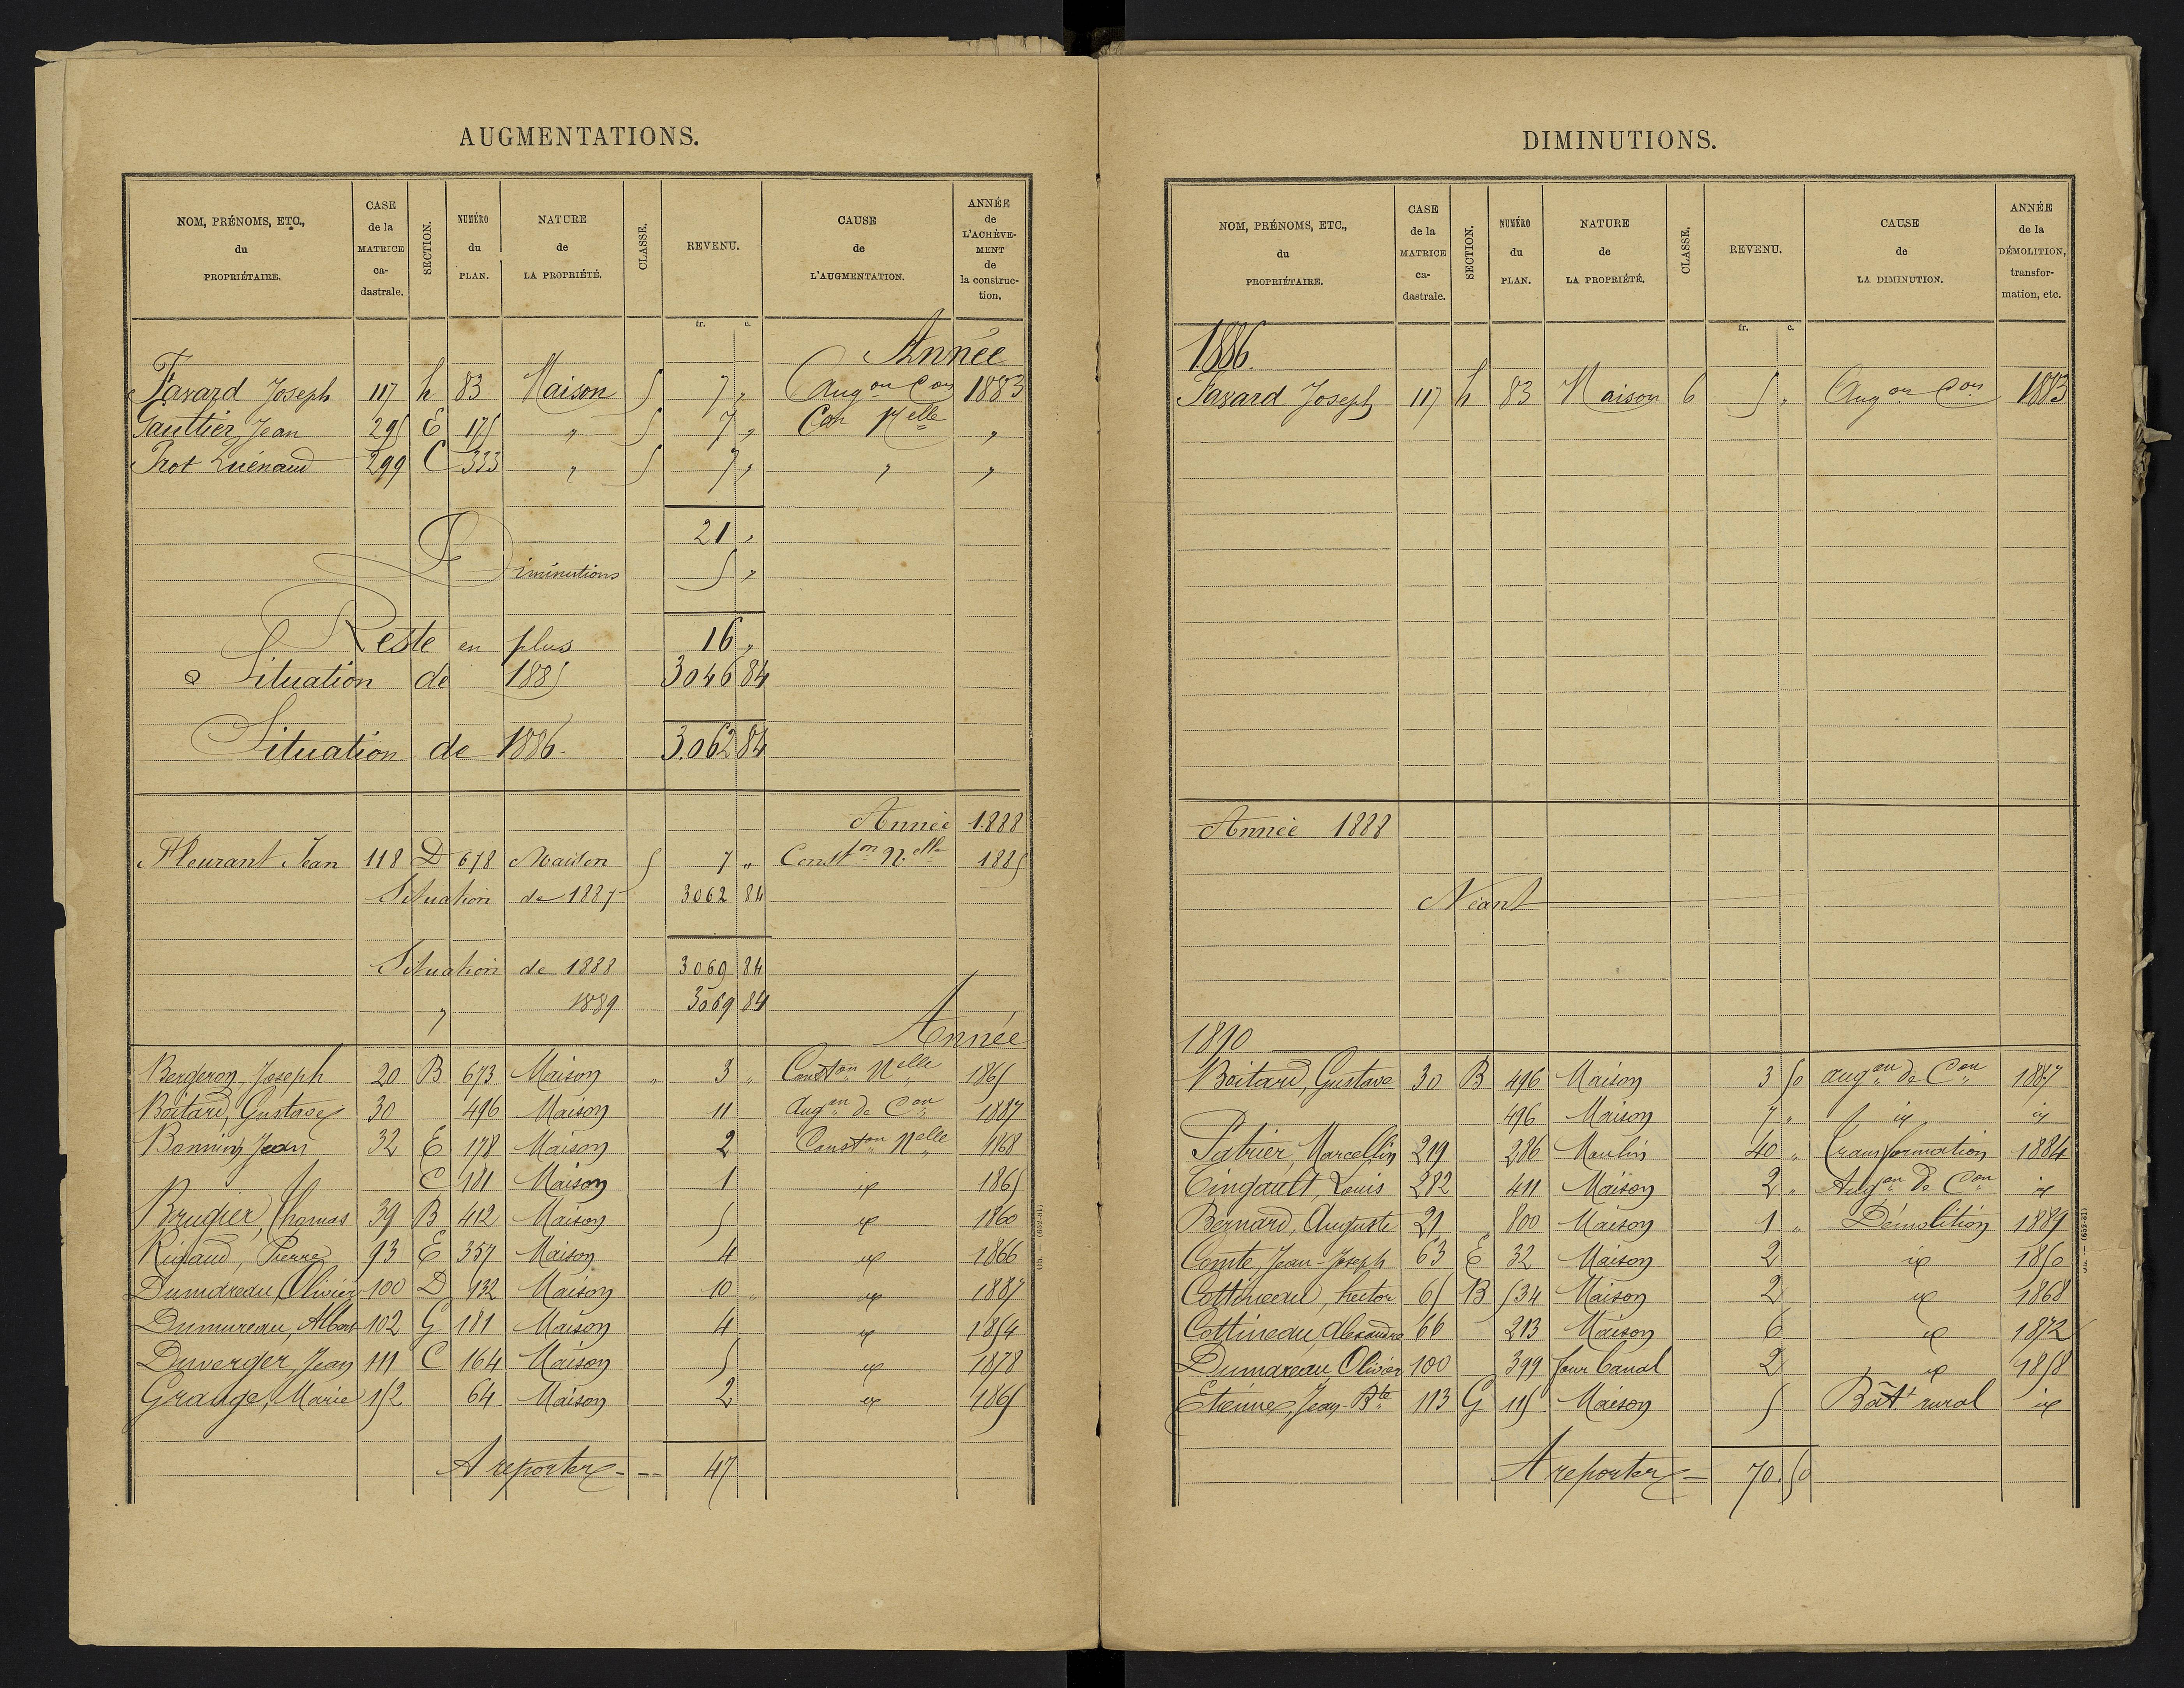 AUGMENTATIONS.
NOM, PRÉNOMS, ETC., du PROPRIÉTAIRE. CASE de la MATRICE ca-dastrale. SECTION. NUMÉRO du PLAN. NATURE de LA PROPRIÉTÉ. CLASSE. REVENU. CAUSE de L'AUGMENTATION. ANNÉE de L'ACHÈVE-MENT de la construc-tion.
fr. c.
Année
Favard Joseph 117 h 83 Maison 5 7 „ Aug.on Con 1883
Gaultier, Jean 295 E 175 „ 5 7 „ Con Nelle „
Prot Liénard 299 C 333 „ 5 7 „ „ „
21 „
Diminutions 5 „
Reste en plus 16 „
Situation de 1885 3046 84
Situation de 1886. 3.062 84
Année 1.888
Fleurant Jean 118 D 678 Maison 5 7 „ Const.on N.elle 1885
Situation de 1887 3062 84
Situation de 1888 3069 84
„ 1889 3069 84
Année
Bergeron, Joseph 20 B 673 Maison „ 3 „ Const.on Nelle 1865
Boitard, Gustave 30 496 Maison 11 Aug.on de Con 1887
Bonnin, Jean 32 E 178 Maison 2 Const.on Nelle 1868
C 181 Maison 1 id 1865
Brugier, Thomas 39 B 412 Maison 5 id 1860
Rigaud, Pierre 93 E 357 Maison 4 id 1866
Dumareau, Olivier 100 D 932 Maison 10 „ id 1887
Dumureau, Albert 102 G 181 Maison 4 id 1854
Duverger, Jean 111 C 164 Maison 5 id 1878
Grange, Marie 152 64 Maison 2 id 1865
A reporter --- 47
DIMINUTIONS.
NOM, PRÉNOMS, ETC., du PROPRIÉTAIRE. CASE de la MATRICE ca-dastrale. SECTION. NUMÉRO du PLAN. NATURE de LA PROPRIÉTÉ. CLASSE. REVENU. CAUSE de LA DIMINUTION. ANNÉE de la DÉMOLITION, transfor-mation, etc.
fr. c.
1886.
Favard Joseph 117 h 83 Maison 6 5 „ Aug on Con 1883
Année 1888
Néant
1890
Boitard, Gustave 30 B 496 Maison 3 50 aug.on de Con 1887
496 Maison 7 „ id id
Patrier, Marcellin 219 286 Moulin 40 „ transformation 1884
Tingault, Louis 282 411 Maison 2 „ Aug.on de Con id
Bernard, Auguste 21 „ 800 Maison 1 „ Démolition 1889
Comte, Jean-Joseph 63 E 32 Maison 2 id 1850
Cottineau, hector 65 B 534 Maison 2 id 1868
Cottineau, Alexandre 66 213 Maison 6 id 1872
Dumareau, Olivier 100 399 four banal 2 id 1858
Etienne, Jean-Bte 113 G 115 Maison 5 Bât.t rural id
A reporter - 70.50